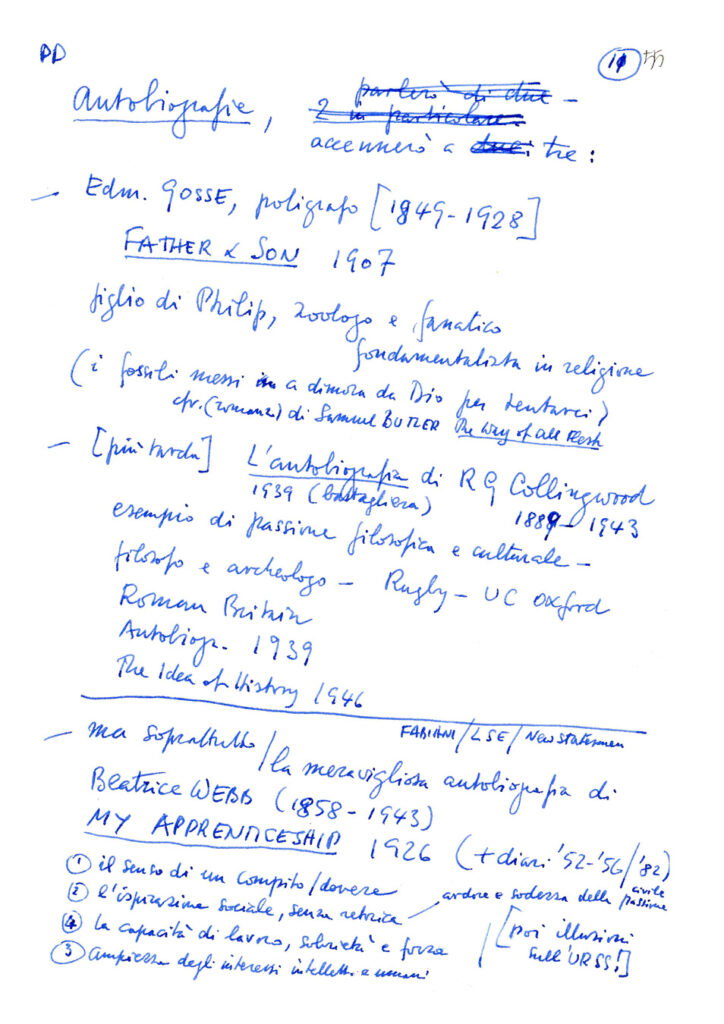 PD
11
Autobiografie, parlerò di due –
2 in particolare:
accennerò a due: tre:
– Edm. GOSSE, poligrafo [1849-1928]
FATHER & SON 1907
figlio di Philip, zoologo e fanatico
fondamentalista in religione
(i fossili messi in a dimora da Dio per tentarci)
cfr. (romanzo) di Samuel BUTLER The Way of all Flesh
– [più tarda] L'autobiografia di RG Collingwood
1939 (battagliera) 1889-1943
esempio di passione filosofica e culturale –
filosofo e archeologo – Rugby – UC Oxford
Roman Britain
Autobiogr. 1939
The Idea of History 1946
FABIANI/LSE/New Statesman
– ma soprattutto/la meravigliosa autobiografia di
Beatrice WEBB (1858-1943)
MY APPRENTICESHIP 1926 (+ diari '52-'56/'82)
① il senso di un compito/dovere
② l'ispirazione sociale, senza retorica – ardore e sodezza della civile passione
④ la capacità di lavoro, sobrietà e forza
③ ampiezza degli interessi intellett. e umani
[poi illusioni
sull'URSS!]